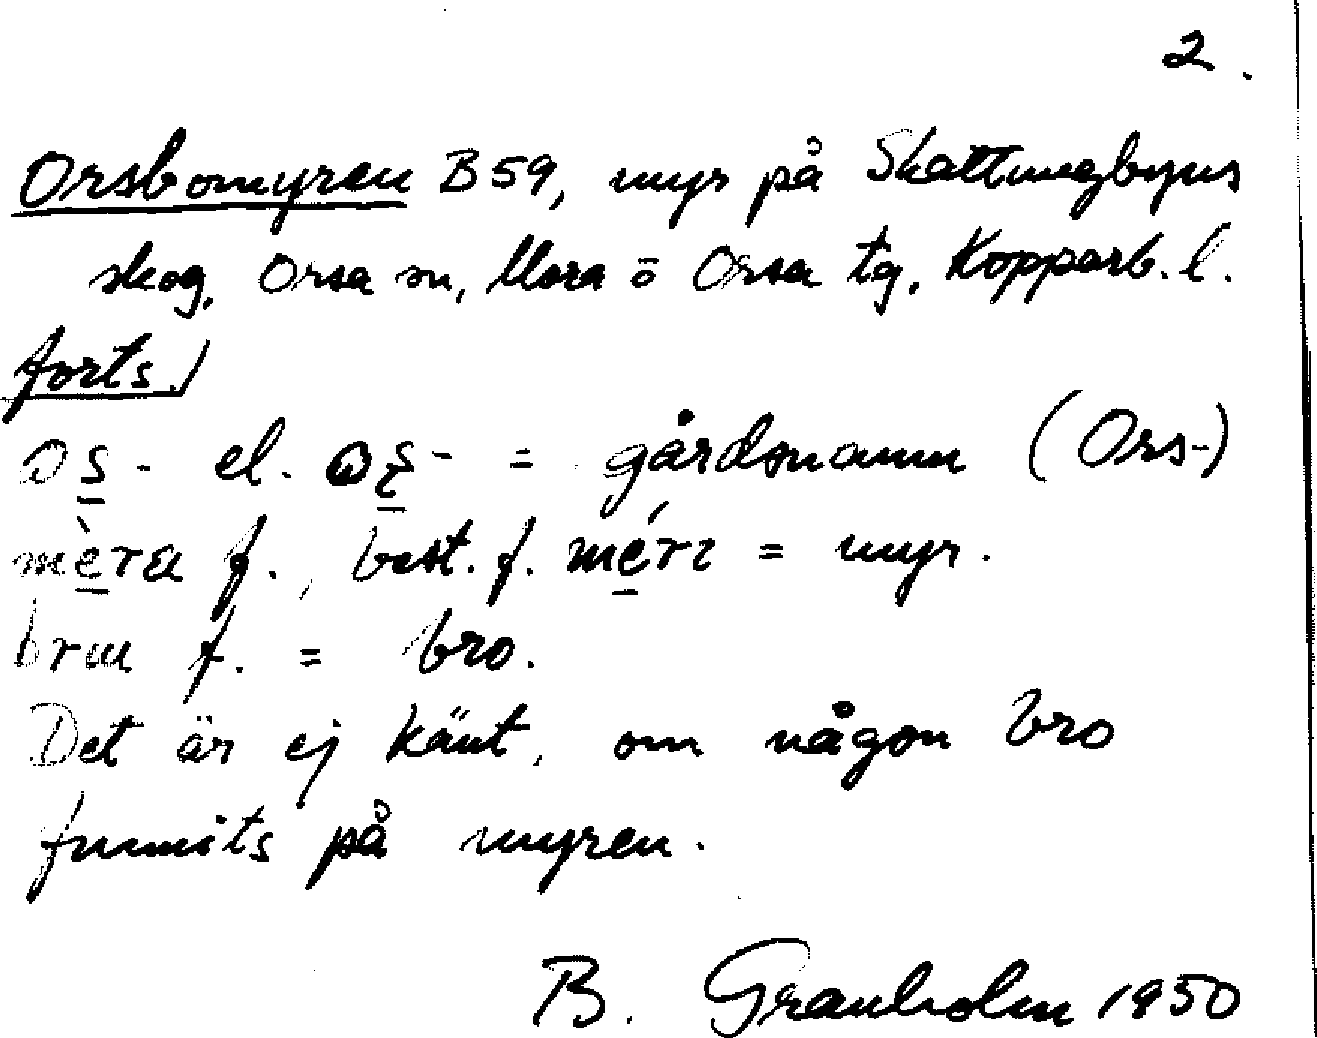 2.
Orsbomyren B59, myr på Skattungbyns
skog, Orsa sn, Mora o Orsa tg, Kopparb. l.
forts.)
os- el. os- = gårdsnamn (Ors-)
mèra f., best. f. méri = myr.
f. = bro.
Det är ej känt, om någon bro
funnits på myren.
B. Granholm 1950